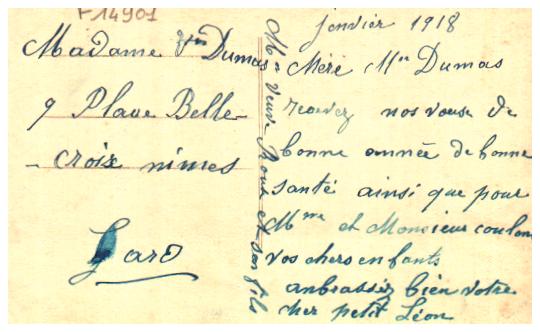 F14901
Madame Vve Dumas
9 Place Belle-
- croix nimes
Gard
Janvier 1918
Mère Mlle Dumas
recevez nos veuse de
bonne année de bonne
santé ainsi que pour
Mme et Monsieur coulom
vos chers enfants
anbrassiz bien votre
cher petit Léon
Ma veuve et son fils